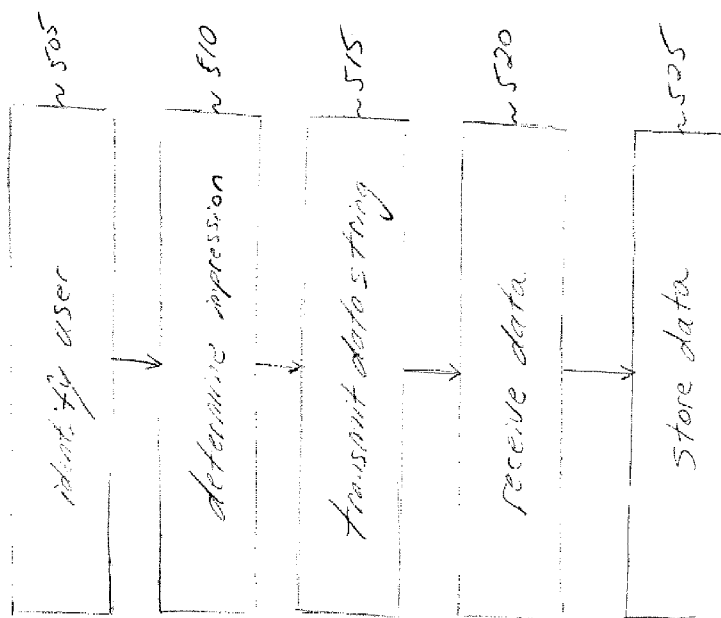 identify user
~505
determine impression
~510
transmit data string
~515
receive data
~520
store data
~525